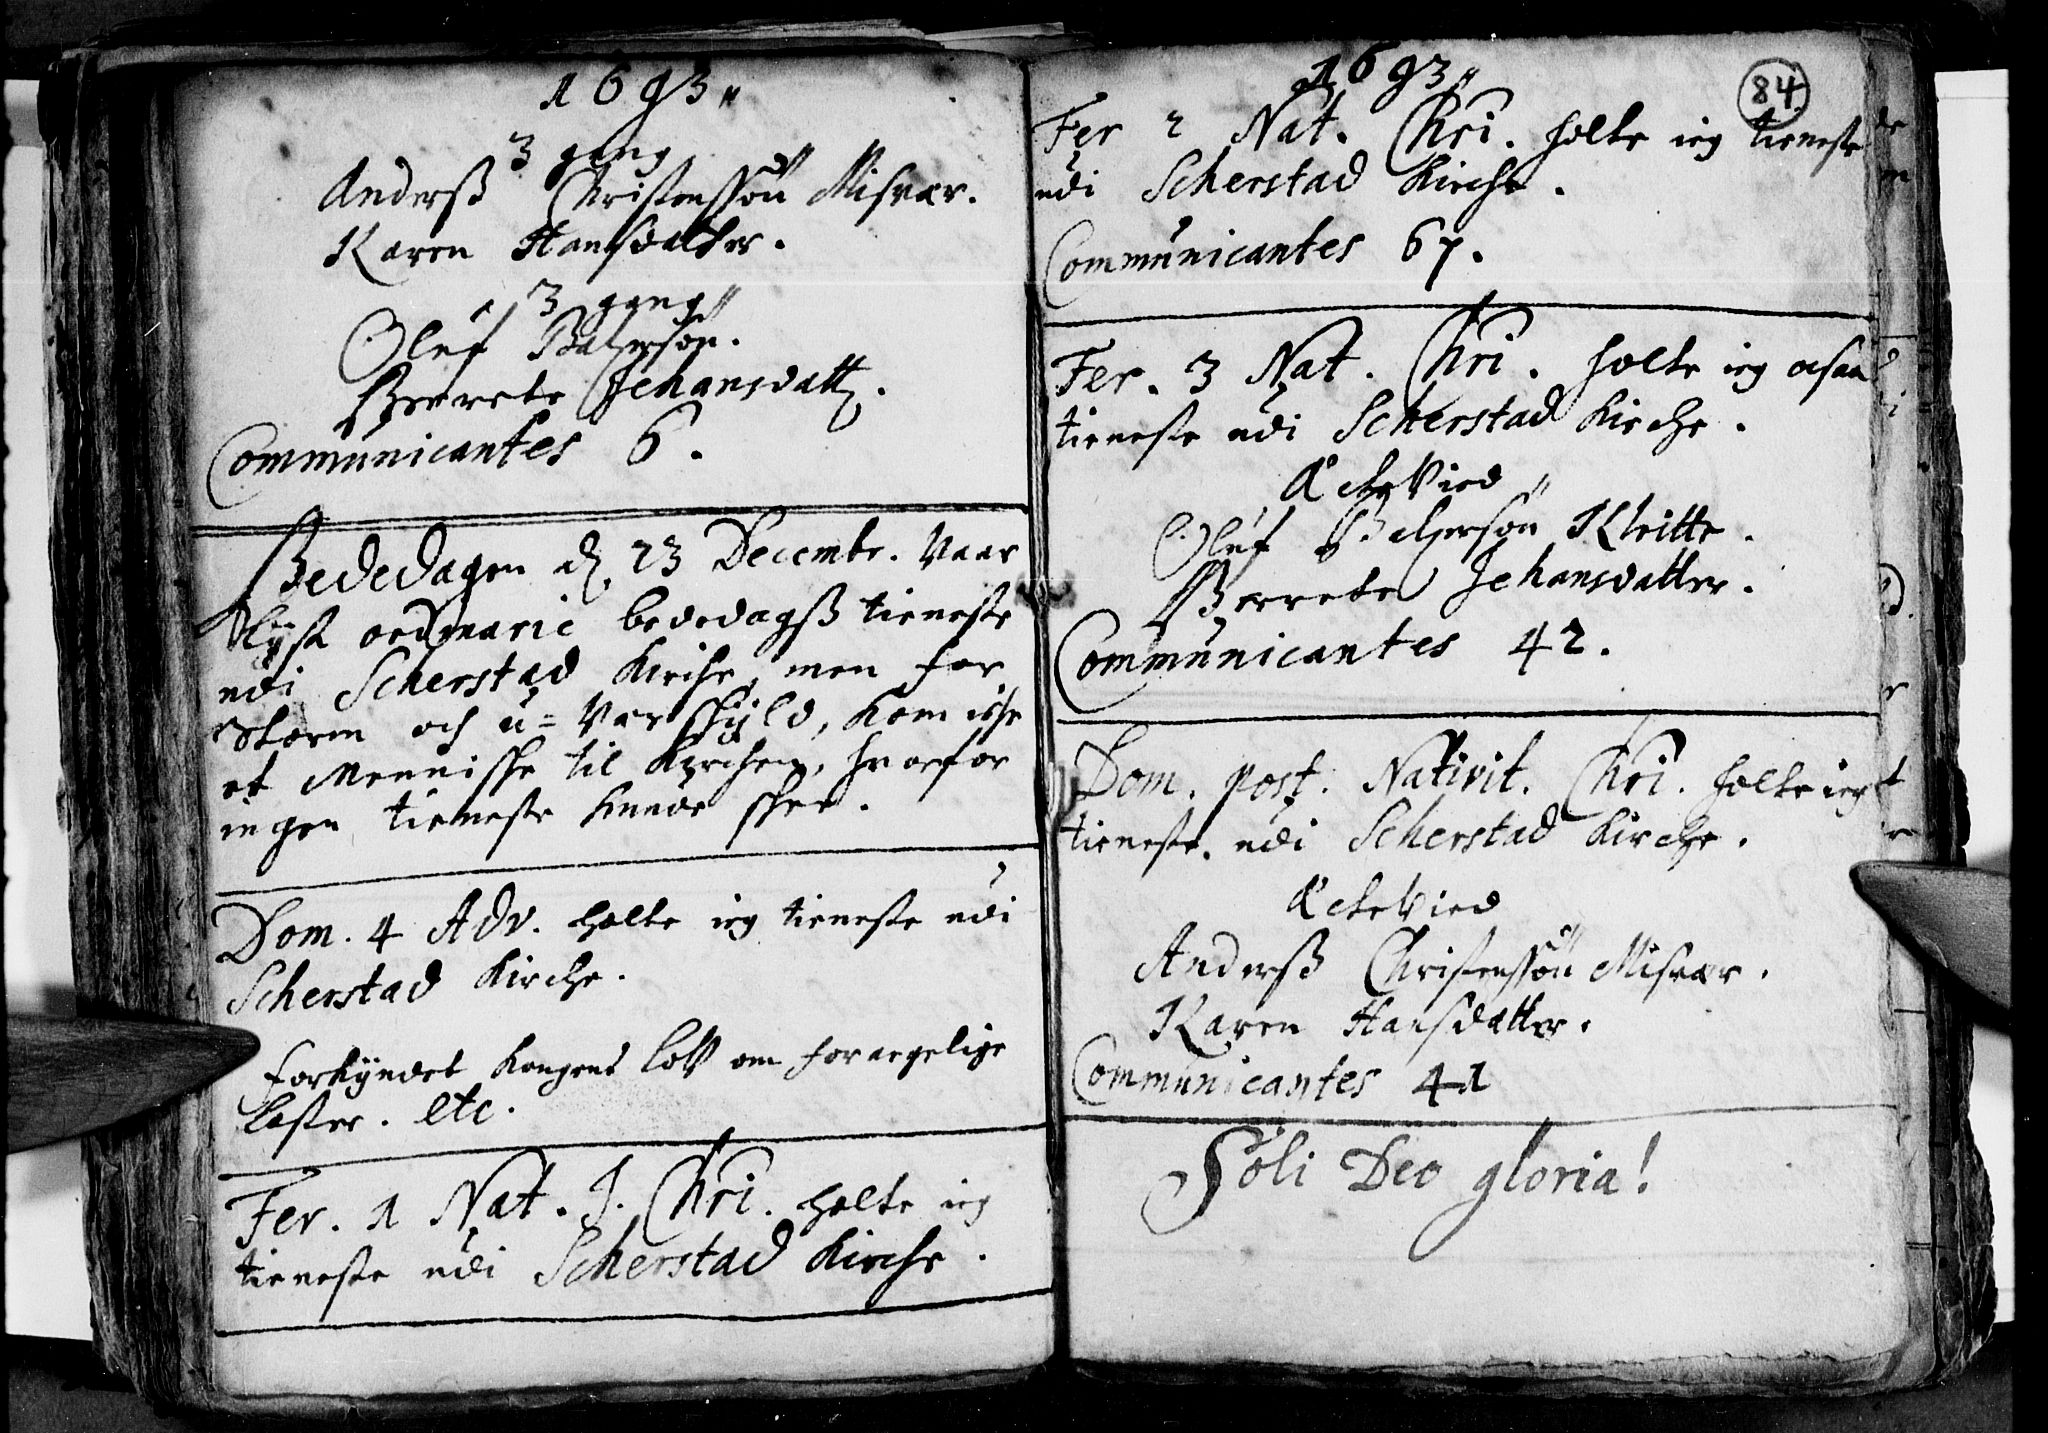 1693
3 gang
Anderß Christenssön Misvær.
Karen Hansdatter.
3 gang
Oluf Balzersön.
Berrete Jehansdatt.
Communicantes 6.
Bededagen d. 23 Decembr. Vaar
lyst ordinarie bededagß tieneste
udi Scherstad Kirche, men for
Storm och u=Var skyld, kom iche
et Menniske til Kirchen, hvorfor
ingen tieneste kunde skee.
Dom. 4 Adv. holte ieg tieneste udi
Scherstad Kirche.
forkyndet Kongens lov om forargelige
laster. etc.
Fer. 1 Nat. J. Chri. holte ieg
tieneste udi Scherstad Kirche.
1693
84
Fer 2 Nat. Chri. holte ieg tieneste
udi Scherstad Kirche.
Communicantes 67.
Fer. 3 Nat. Chri. holte ieg ocsaa
tieneste udi Scherstad Kirche.
ÆcteVied
Oluf Balzersön Kleitte.
Berrete Jehansdatter.
Communicantes 42.
Dom. post. Nativit. Chri. holte ieg
tieneste udi Scherstad Kirche.
ÆcteVied
Anderß Christenssön Misvær.
Karen Hansdatter.
Communicantes 41
Soli Deo gloria!